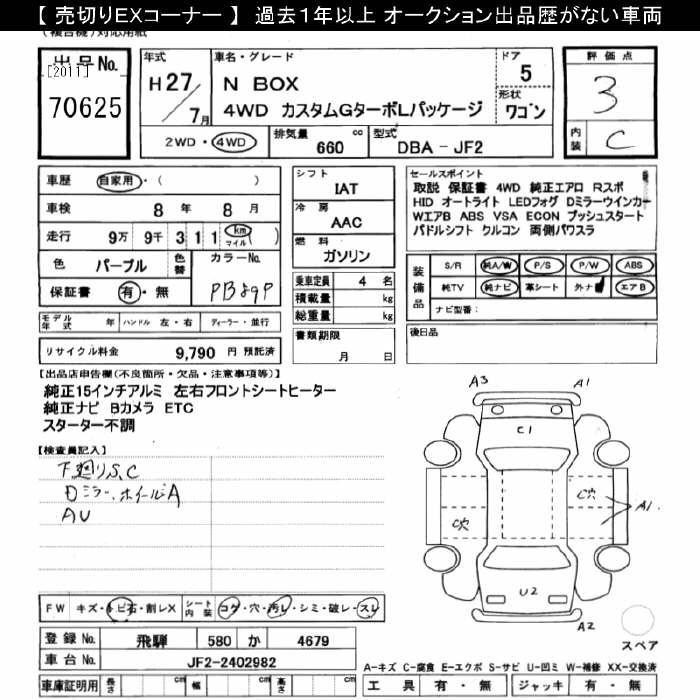 【 売切りEXコーナー 】 過去１年以上 オークション出品歴がない車両
（複合機）対応用紙
出 品 No.
[2011]
70625
年式
H27/7月
車名・グレード
N BOX
4WD カスタムGターボLパッケージ
ドア
5
形状
ワゴン
評 価 点
3
内装
C
2WD・4WD
排気量
660 cc
型式
DBA - JF2
車歴 自家用・（ ）
車検 8 年 8 月
走行 9万 9千 3 1 1 km マイル ( )
色 パープル
色替
カラーNo.
PB89P
保証書 有・無
シフト
IAT
冷 房
AAC
燃 料
ガソリン
乗車定員 4 名
積載量 kg
総重量 kg
書類期限
月 日
セールスポイント
取説 保証書 4WD 純正エアロ Rスポ
HID オートライト LEDフォグ Dミラーウインカー
WエアB ABS VSA ECON プッシュスタート
パドルシフト クルコン 両側パワスラ
装備品
S/R 純A/W P/S P/W ABS
純TV 純ナビ 革シート 外ナビ エアB
ナビ型番：
モデル年式 年 ハンドル 左・右 ディーラー・並行
リサイクル料金 9,790 円 預託済
後日品
【出品店申告欄(不良箇所・欠品・注意事項等)】
純正15インチアルミ 左右フロントシートヒーター
純正ナビ Bカメラ ETC
スターター不調
【検査員記入】
下廻りS、C
Dミラー、ホイールA
AU
A3 A1
C1
C穴
C穴
A1.
U2
A2
スペア
FW キズ・トビ石・割レX シート内装 コゲ・穴・汚レ・シミ・破レ・スレ
登録 No. 飛騨 580 か 4679
車 台 No. JF2-2402982
車庫証明用 長さ 幅 高さ
A-キズ C-腐食 E-エクボ S-サビ U-凹ミ W-補修 XX-交換済
工 具 有・無 ジャッキ 有・無